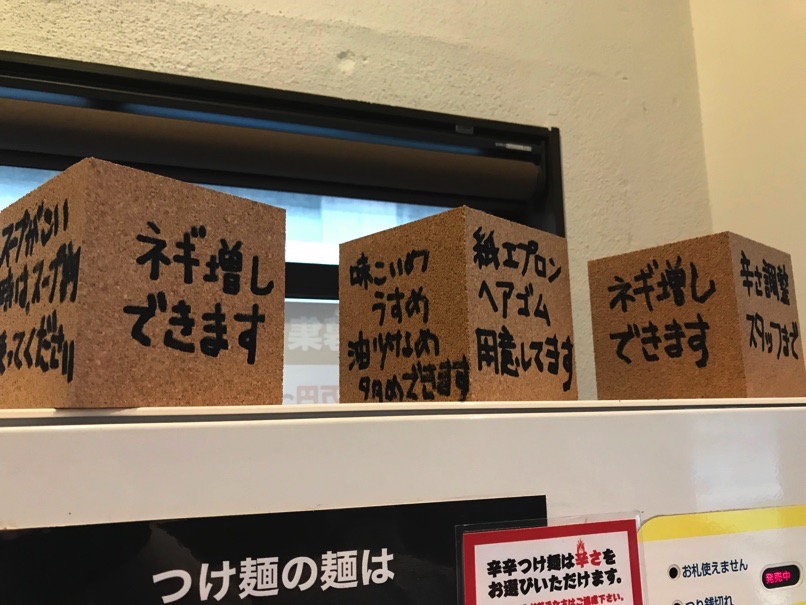 スープがこい
時は、スープ割
使ってください
ネギ増し
できます
味こいめ
うすめ
油少なめ
多めできます
紙エプロン
ヘアゴム
用意してます
ネギ増し
できます
辛さ調整
スタッフまで
つけ麺の麺は
辛辛つけ麺は辛さを
お選びいただけます。
お札使えません
発売中
つり銭切れ